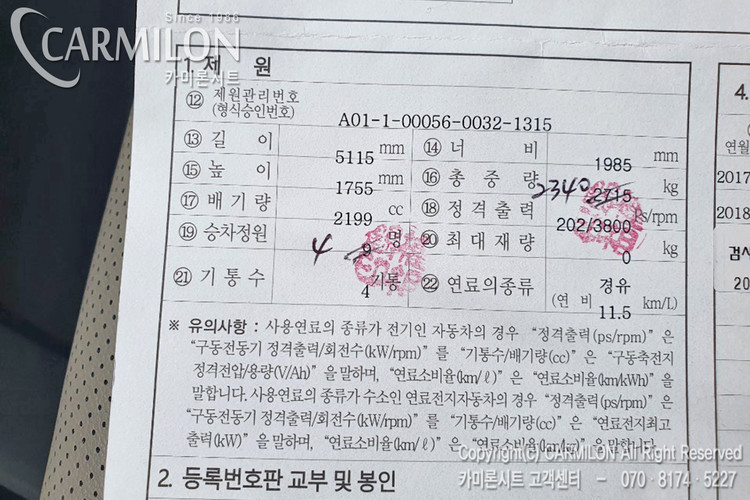 Since 1986
CARMILON
카미론시트
1. 제 원
⑫ 제원관리번호
(형식승인번호)
A01-1-00056-0032-1315
⑬ 길 이 5115 mm ⑭ 너 비 1985 mm
⑮ 높 이 1755 mm ⑯ 총 중 량 2340 2715 kg
⑰ 배 기 량 2199 cc ⑱ 정격출력 202/3800 ps/rpm
⑲ 승차정원 4 9 명 ⑳ 최대재량 0 kg
㉑ 기 통 수 4 기통 ㉒ 연료의종류 경유
(연 비 11.5 km/L)
※ 유의사항 : 사용연료의 종류가 전기인 자동차의 경우 “정격출력(ps/rpm)”은
“구동전동기 정격출력/회전수(kW/rpm)”를 “기통수/배기량(cc)”은 “구동축전지
정격전압/용량(V/Ah)”을 말하며, “연료소비율(km/ℓ)”은 “연료소비율(km/kWh)”을
말합니다. 사용연료의 종류가 수소인 연료전지자동차의 경우 “정격출력(ps/rpm)”은
“구동전동기 정격출력/회전수(kW/rpm)”를 “기통수/배기량(cc)”은 “연료전지최고
출력(kW)”을 말하며, “연료소비율(km/ℓ)”은 “연료소비율(km/kg)”을 말합니다.
2. 등록번호판 교부 및 봉인
4.
연월
2017
2018
검사
20
Copyright(c) CARMILON All Right Reserved
카미론시트 고객센터 – 070 · 8174 · 5227